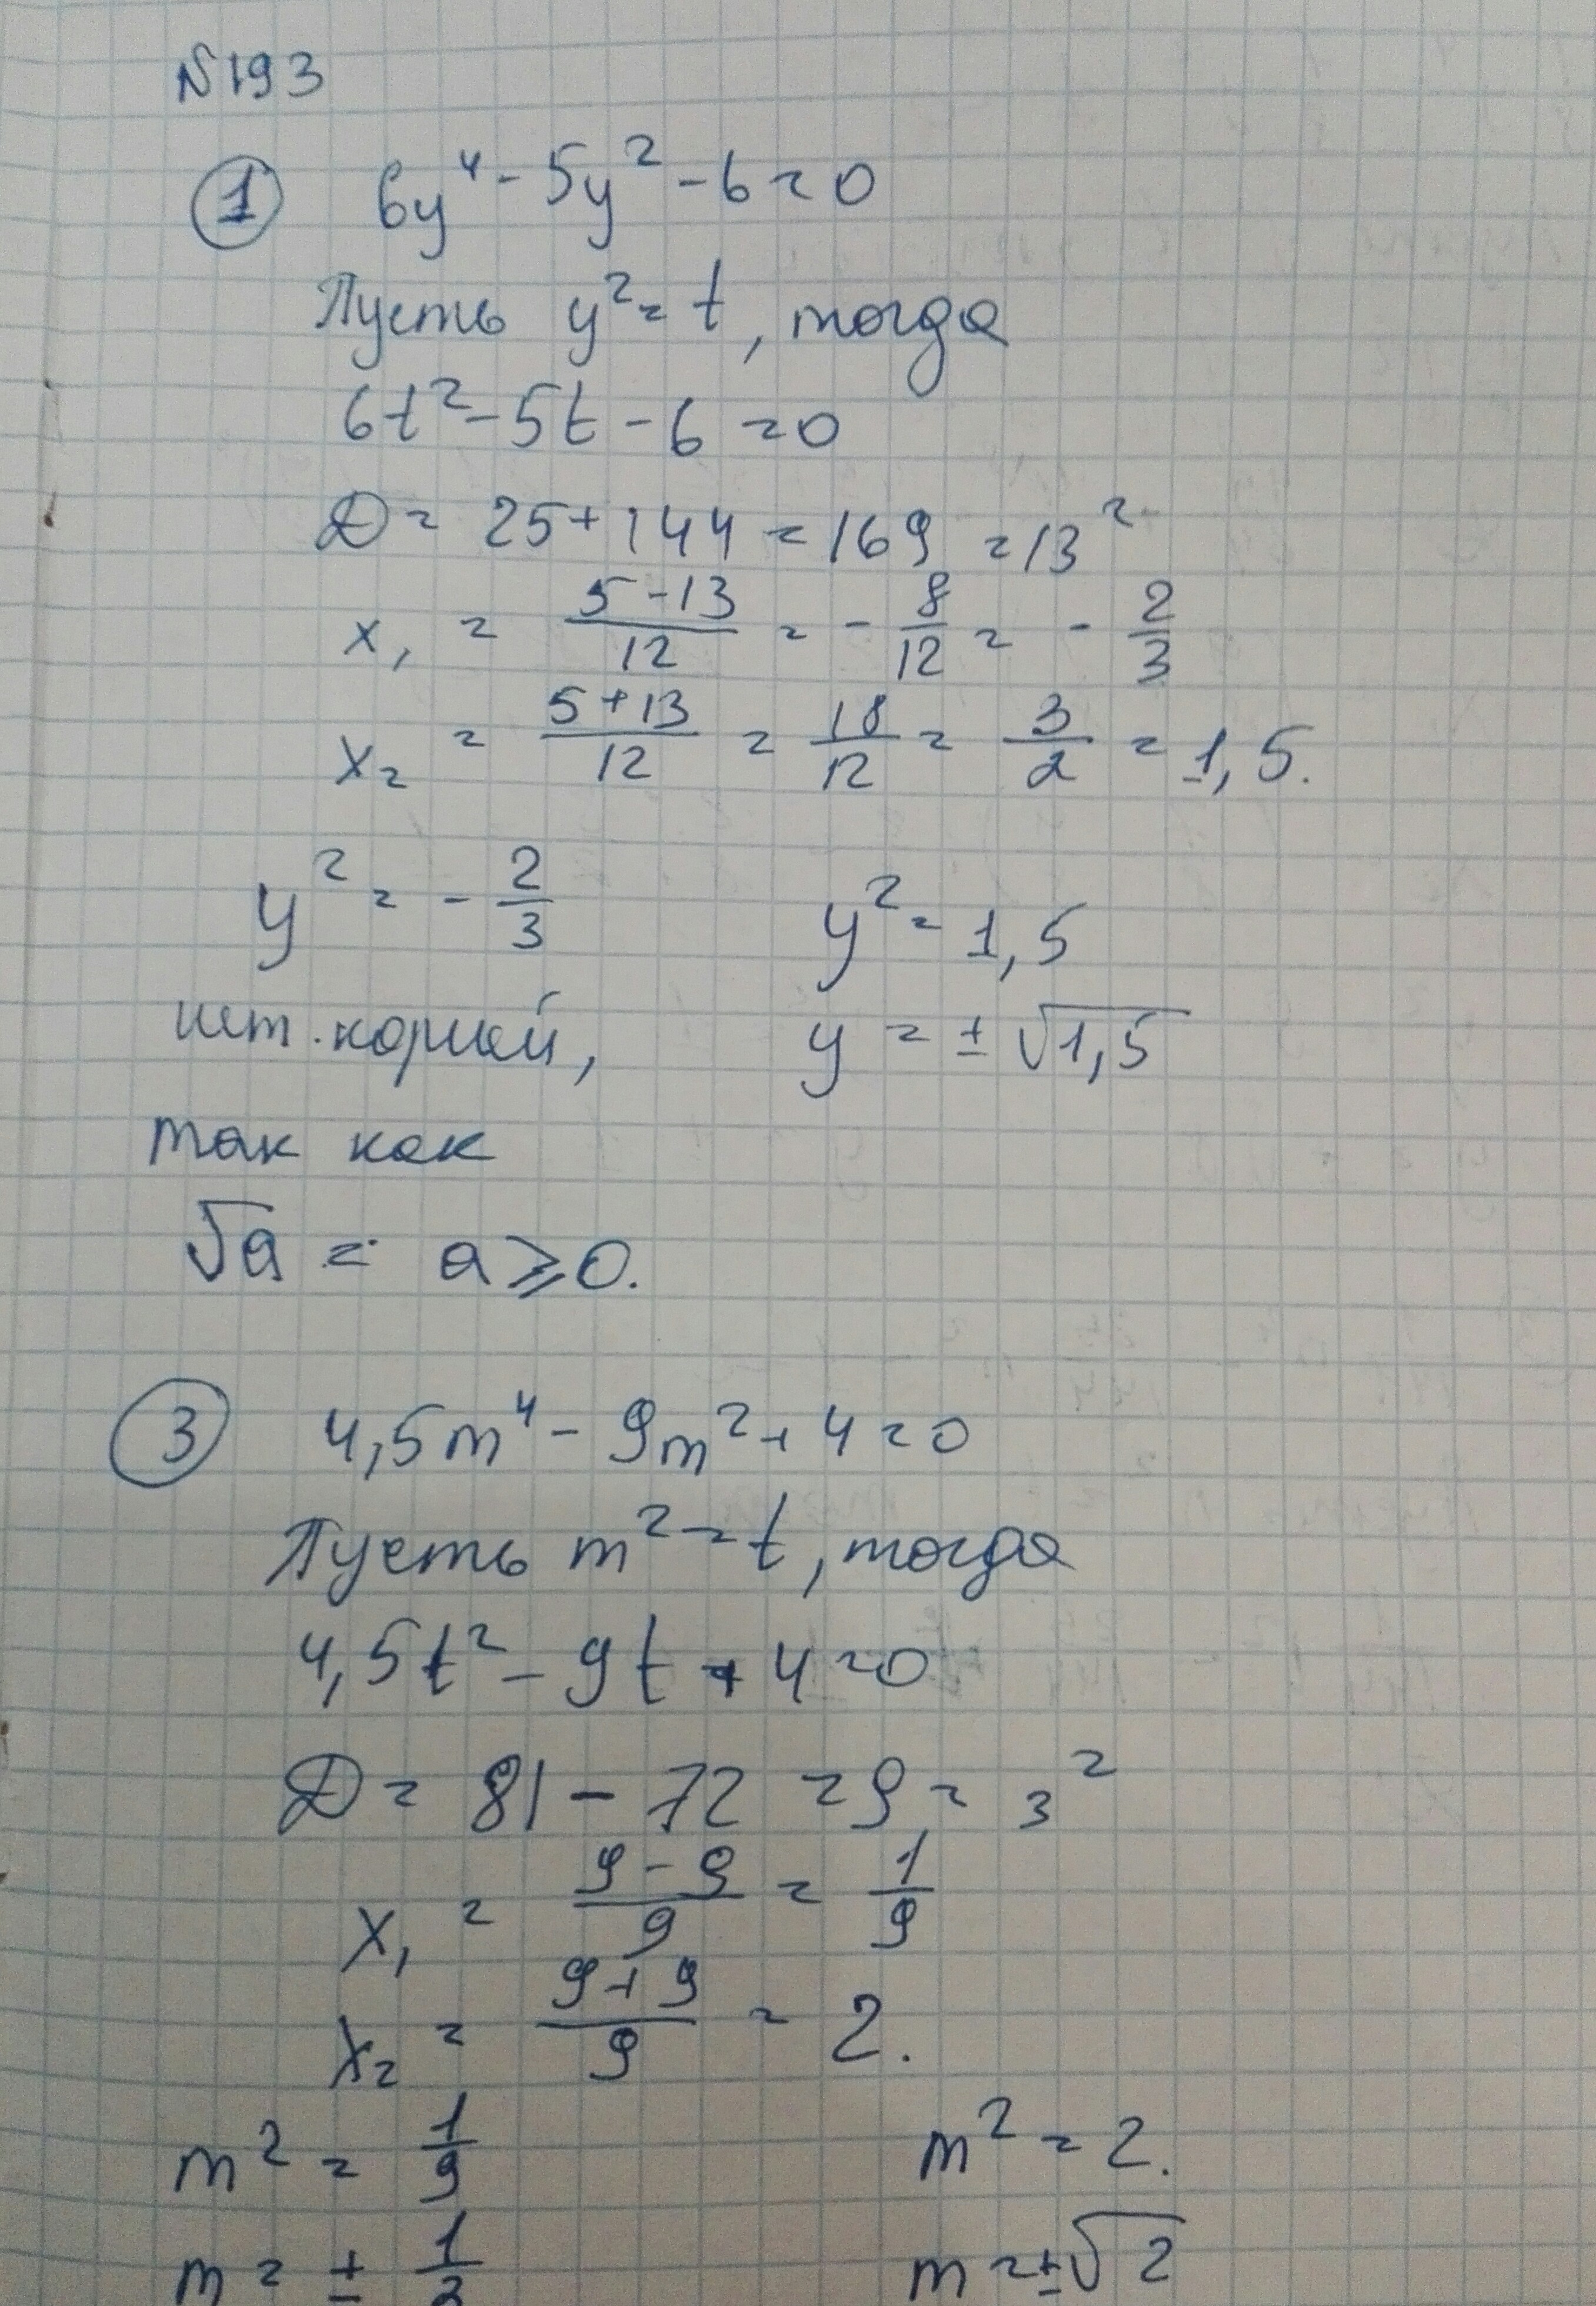 N193
1 6y⁴ - 5y² - 6 = 0
Пусть y² = t, тогда
6t² - 5t - 6 = 0
D = 25 + 144 = 169 = 13²
x₁ = (5 - 13)/12 = - 8/12 = - 2/3
x₂ = (5 + 13)/12 = 18/12 = 3/2 = 1,5.
y² = - 2/3 y² = 1,5
нет корней, y = ± √1,5
так как
√a = a ⩾ 0.
3 4,5m⁴ - 9m² + 4 = 0
Пусть m² = t, тогда
4,5t² - 9t + 4 = 0
D = 81 - 72 = 9 = 3²
x₁ = (9 - 9)/9 = 1/9
x₂ = (9 + 9)/9 = 2.
m² = 1/9 m² = 2.
m = ± 1/3 m = ±√2